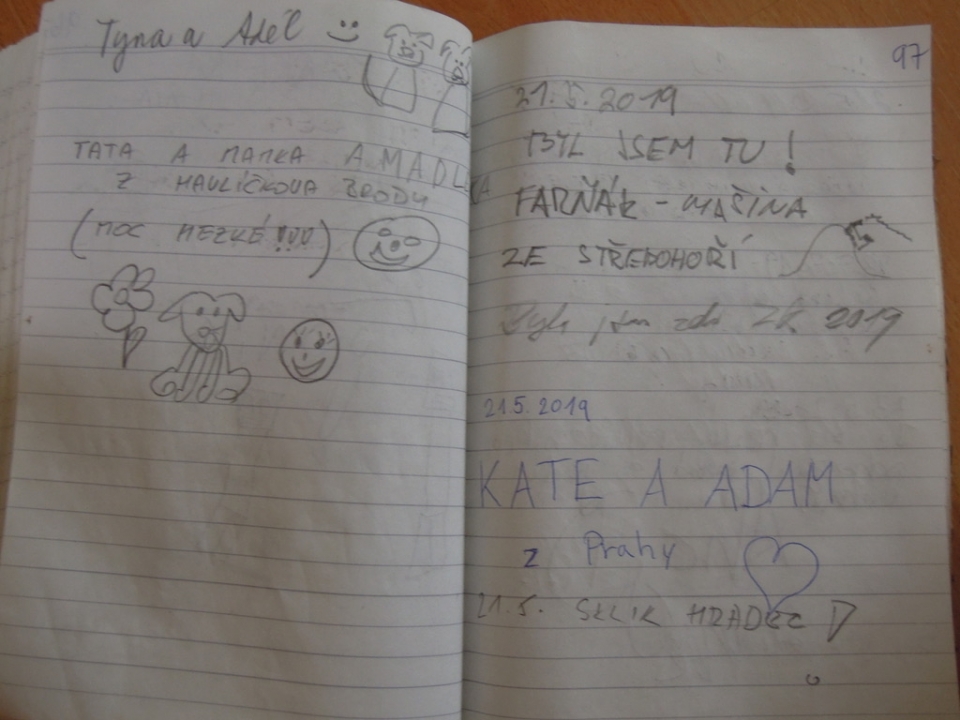 Tyna a Adél
TATA A MAMKA A MADLKA
Z HAVLÍČKOVA BRODU
(MOC HEZKÉ !!!)
97
21.5.2019
BYL JSEM TU!
FARŇÁK - MAŠINA
ZE STŘEDOHOŘÍ
2019
21.5.2019
KATE A ADAM
z Prahy
21.5. SKLIK HRADEC